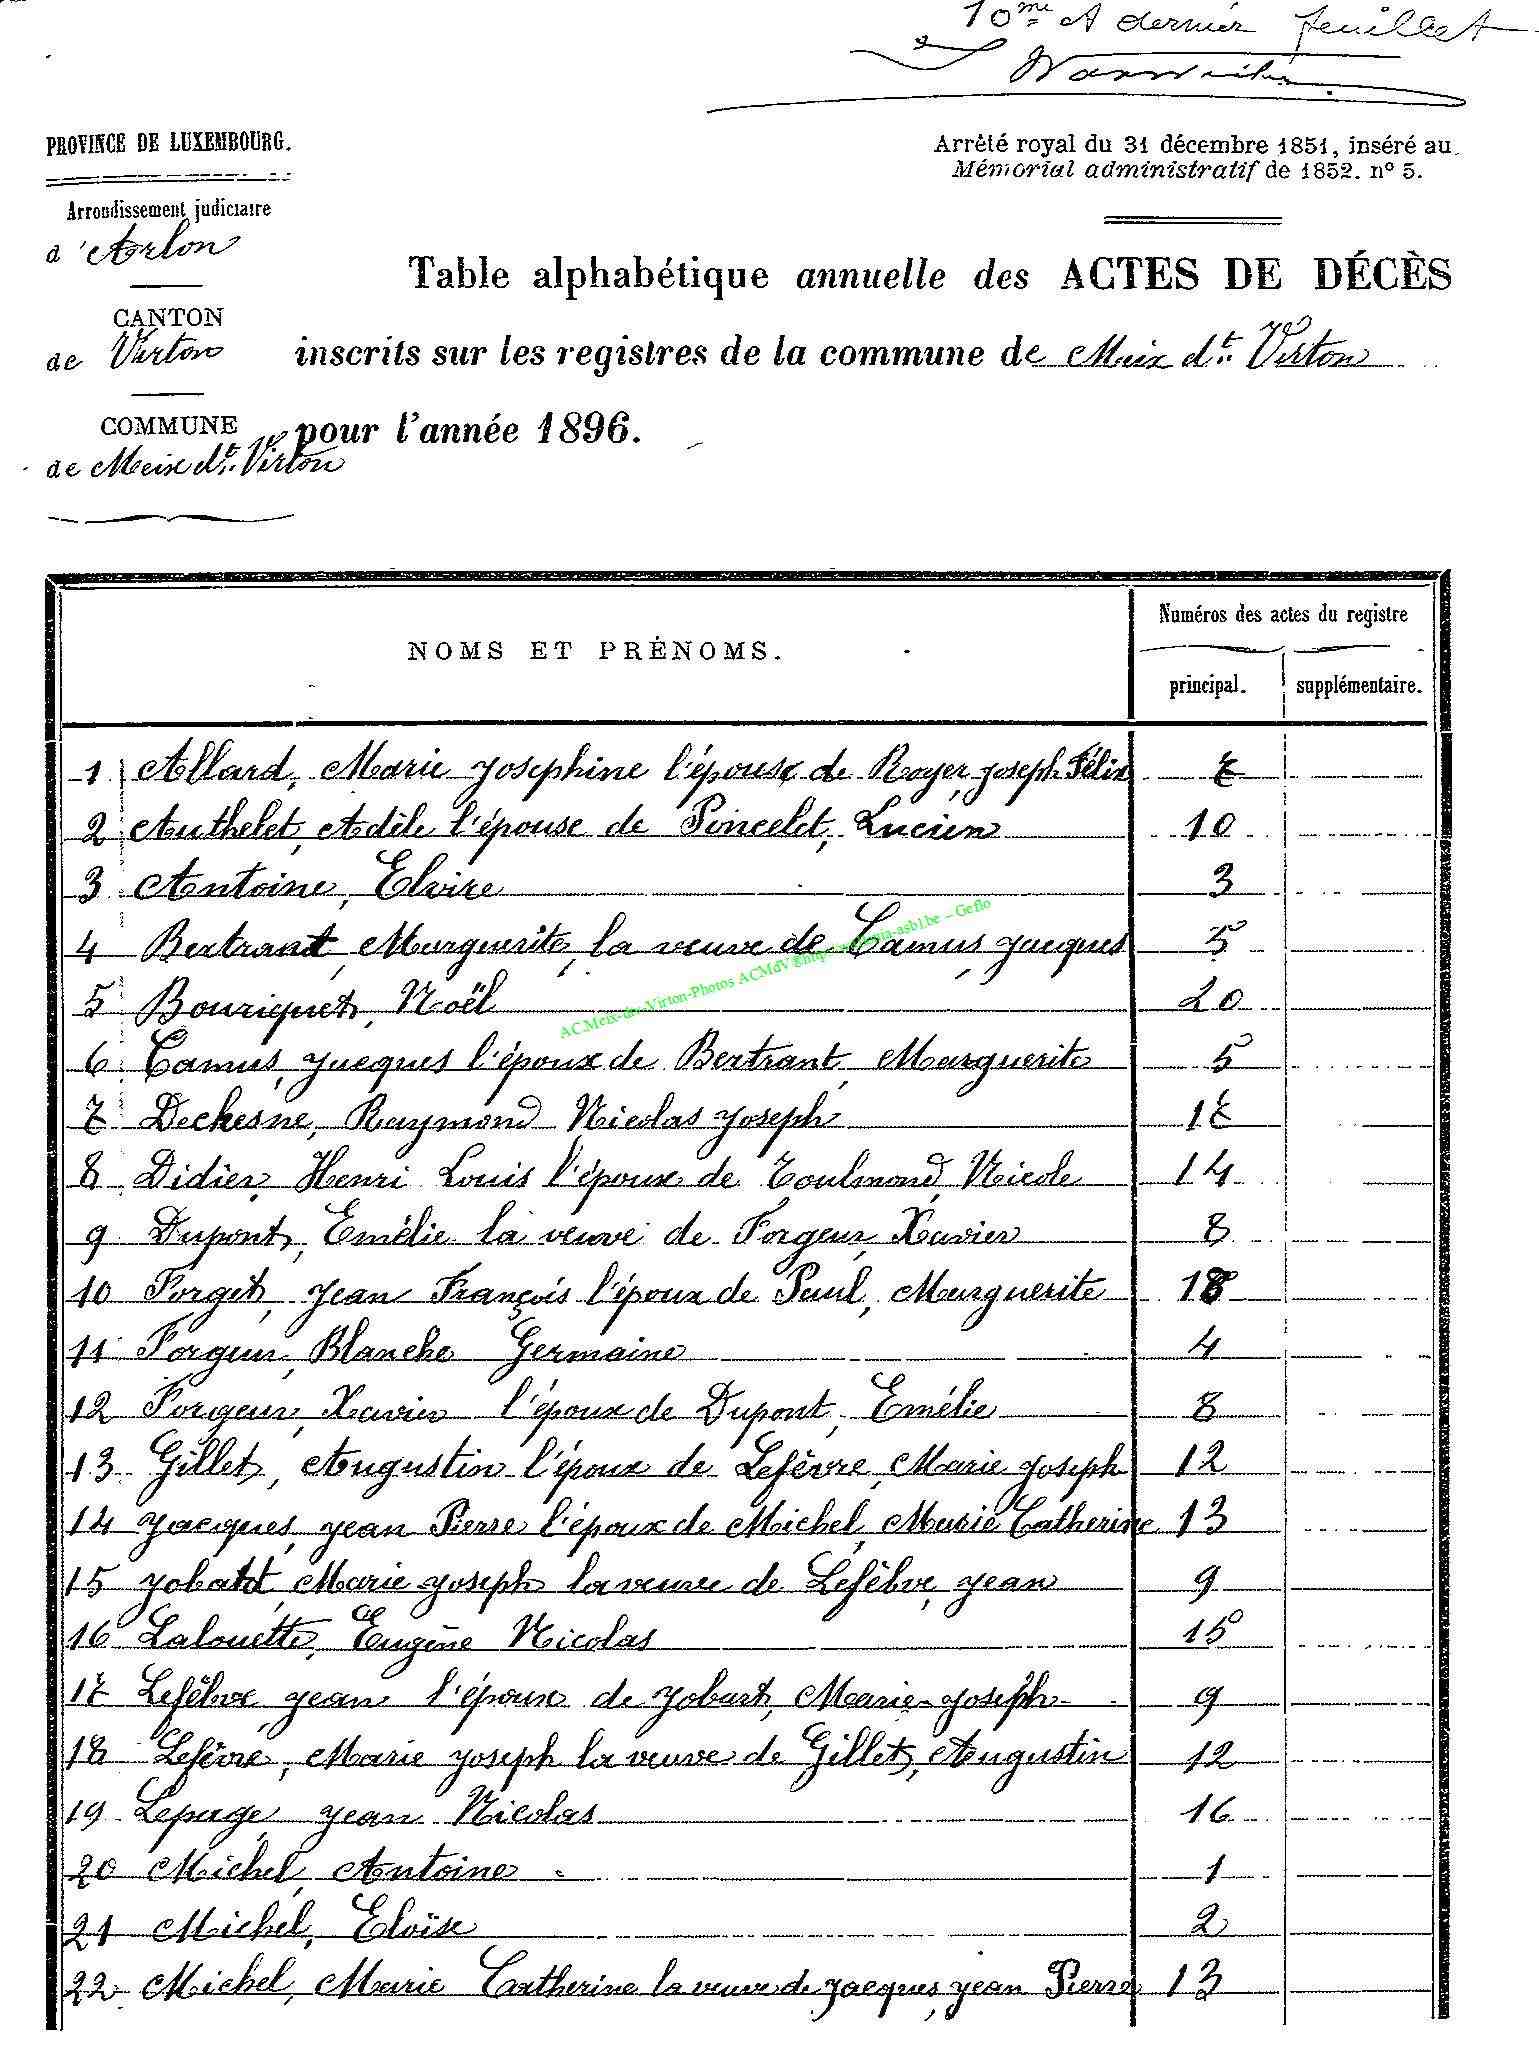 10me et dernier feuillet
PROVINCE DE LUXEMBOURG.
Arrêté royal du 31 décembre 1851, inséré au
Mémorial administratif de 1852. nº 5.
Arrondissement judiciaire
d'Arlon
CANTON
de Virton
COMMUNE
de Meix dt. Virton
Table alphabétique annuelle des ACTES DE DÉCÈS
inscrits sur les registres de la commune de Meix dt. Virton
pour l'année 1896.
NOMS ET PRÉNOMS.
Numéros des actes du registre
principal. supplémentaire.
1 Allard, Marie Josephine l'épouse de Royer, Joseph Félix 7
2 Authelet, Adèle l'épouse de Poncelet, Lucien 10
3 Antoine, Elvire 3
4 Bertrant, Marguerite, la veuve de Camus, Jacques 5
5 Bouriquet, Noël 20
6 Camus, Jacques l'époux de Bertrant, Marguerite 5
7 Dechesne, Raymond Nicolas Joseph 17
8 Didier, Henri Louis l'époux de Toulmond, Nicole 14
9 Dupont, Emélie la veuve de Forgeur, Xavier 8
10 Forget, Jean François l'époux de Paul, Marguerite 18
11 Forgeur, Blanche Germaine 4
12 Forgeur, Xavier l'époux de Dupont, Emélie 8
13 Gillet, Augustin l'époux de Lefèvre, Marie Joseph 12
14 Jacques, Jean Pierre l'époux de Michel, Marie Catherine 13
15 Jobart, Marie Joseph la veuve de Lefèbve, Jean 9
16 Lalouette, Eugène Nicolas 15
17 Lefèbve, Jean l'époux de Jobart, Marie-Joseph 9
18 Lefèvre, Marie Joseph la veuve de Gillet, Augustin 12
19 Lepage, Jean Nicolas 16
20 Michel, Antoine 1
21 Michel, Eloïse 2
22 Michel, Marie Catherine la veuve de Jacques, Jean Pierre 13